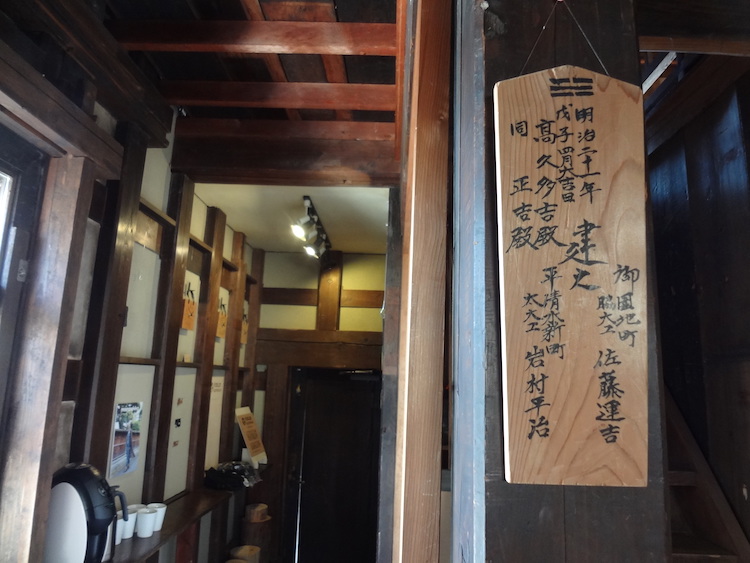 明治二十一年
戊子四月大吉日
髙久多吉殿
同 正吉殿
建之
御圃地町
脇大工 佐藤運吉
平清水新町
大大工 岩村平治